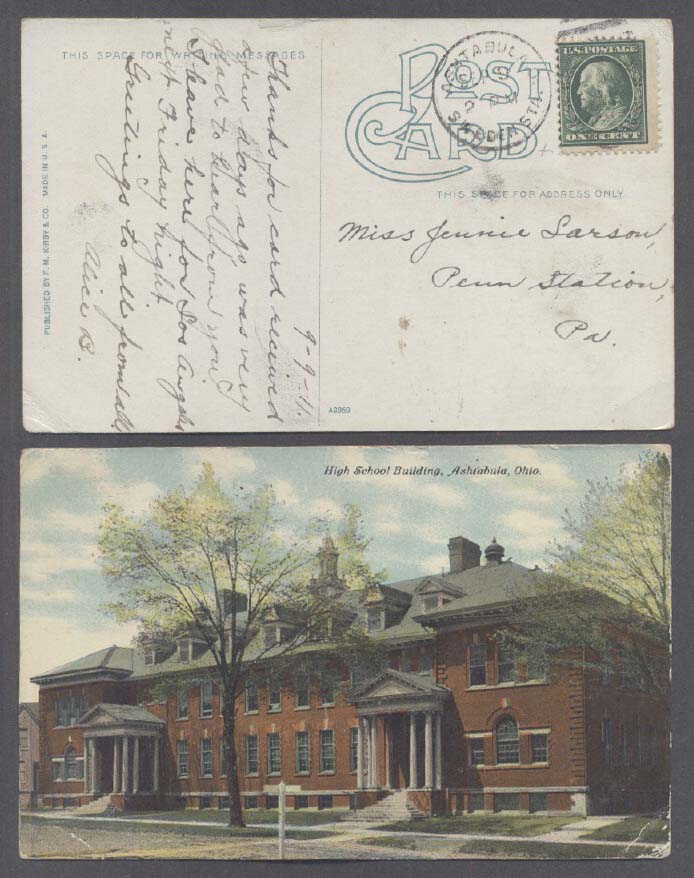 THIS SPACE FOR WRITING MESSAGES
POST
CARD
THIS SPACE FOR ADDRESS ONLY
ASHTABULA
SWEDEN STA.
U.S. POSTAGE
ONE CENT
9-9-11.
Thanks for card received
a few days ago was very
glad to hear from you.
I leave here for Los Angeles
next Friday night.
Greetings to all from all
Alice B.
Miss Jennie Larson,
Penn Station,
Pa.
PUBLISHED BY F. M. KIRBY & CO. MADE IN U. S. A.
High School Building, Ashtabula, Ohio.